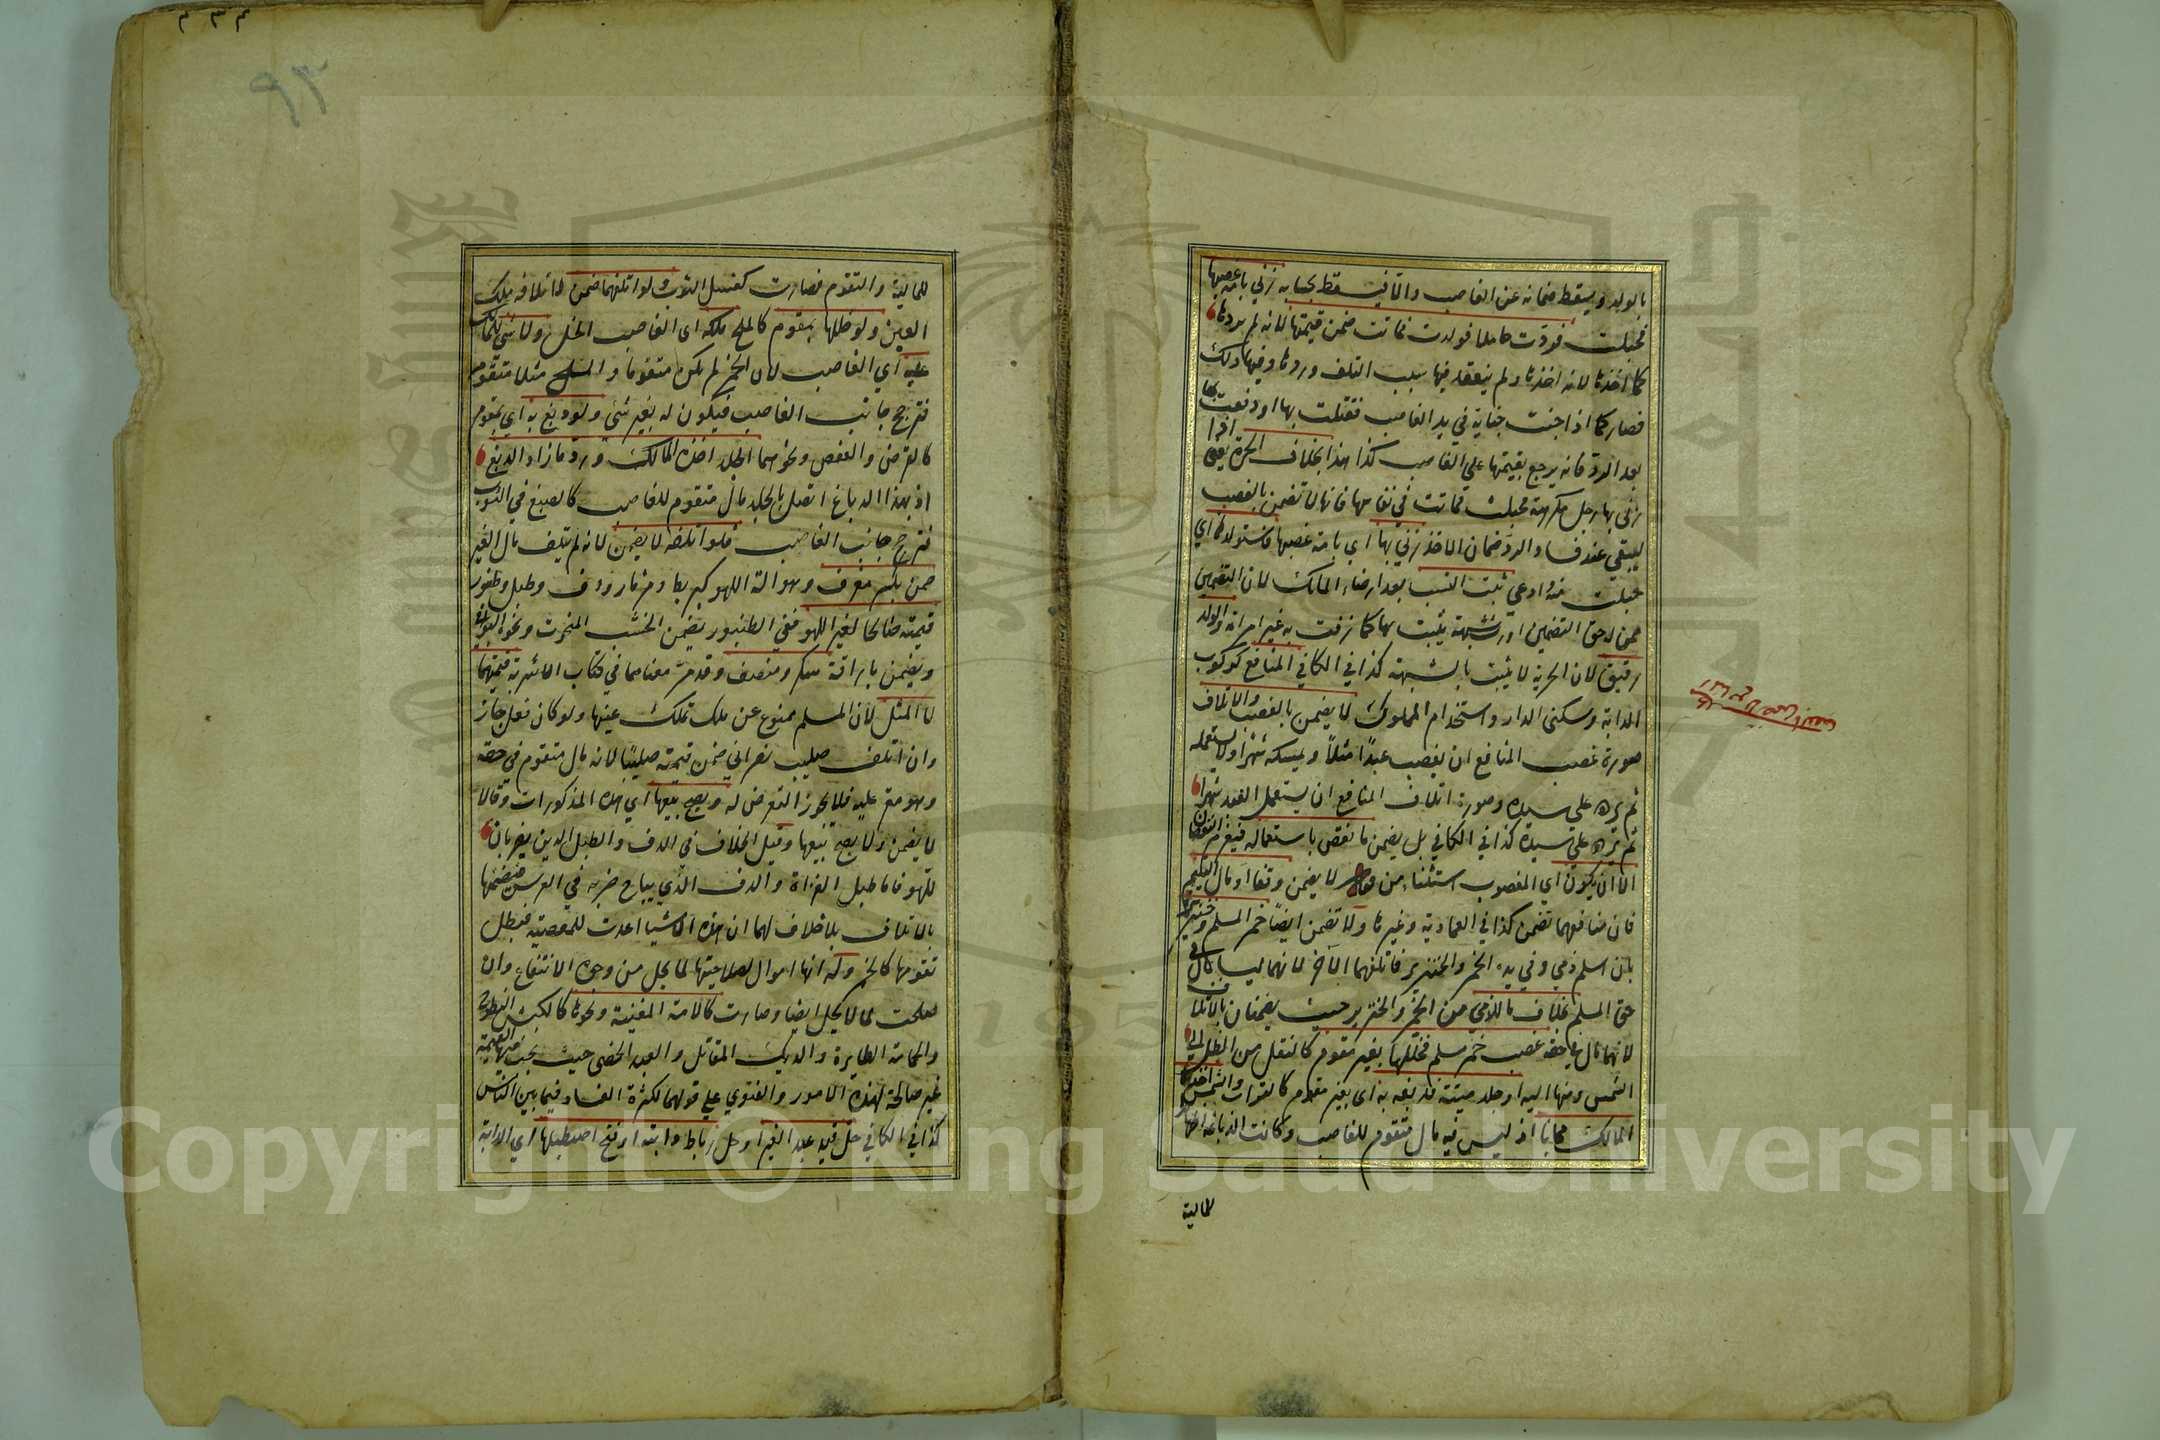 بالولد ويسقط ضمانه عن الغاصب والا فيسقط بحسابه زنى بامة غصبها
فحبلت فردت حاملا فولدت فماتت ضمن قيمتها لانه لم يردها
كما اخذها لانه اخذها ولم ينعقد فيها سبب التلف وردها وفيها ذلك
فصار كما اذا جنت جناية في يد الغاصب فقتلت بها او دفعت بها
بعد الرد فانه يرجع بقيمتها على الغاصب كذا هذا بخلاف الحرة يعني اذا
زنى بها رجل مكرهة فحبلت فماتت في نفاسها فانها لا تضمن بالغصب
ليبقى عند فساد الرد ضمان الاخذ زنى بها اي بامة غصبها فاستولدها اي
حبلت منه وادعى ثبت النسب بعد ارضاء المالك لان التضمين
ممن له حق التضمين اورث شبهة يثبت بها كما زفت اليه غير امراته والولد
رقيق لان الحرية لا يثبت بالشبهة كذا في الكافي المنافع كركوب
الدابة وسكنى الدار واستخدام المملوك لا يضمن بالغصب والاتلاف
صورة غصب المنافع ان يغصب عبدا مثلا ويمسكه شهرا ولا يستعمله
ثم يرده على سيده وصورة اتلاف المنافع ان يستعمل العبد شهرا
ثم يرده على سيده كذا في الكافي بل يضمن ما نقص باستعماله فيغرم النقصان
الا ان يكون اي المغصوب استثناء من قوله لا يضمن وقفا او مال اليتيم
فان منافعهما تضمن كذا في العمادية وغيرها ولا تضمن ايضا خمر المسلم وخنزيره
بان اسلم ذمي وفي يده الخمر والخنزير فاتلفهما الآخر لانهما ليسا بمال في
حق المسلم بخلاف ما للذمي من الخمر والخنزير حيث يضمنان بالاتلاف
لانهما مال في حقه غصب خمر مسلم فخللها بغير متقوم كالنقل من الظل الى
الشمس ومنها اليه او جلد ميتة فدبغه به اي بغير متقوم كالتراب والشمس اخذهما
المالك مجانا اذ ليس فيه مال متقوم للغاصب وكانت الدباغة اظهارا
للمالية
للمالية والتقوم فصارت كغسل الثوب ولو اتلفهما ضمن لاتلافه ملك
العين ولو خللها بمتقوم كالملح ملكه اي الغاصب الخل ولا شيء للمالك
عليه اي الغاصب لان الخمر لم يكن متقوما والملح مثلا متقوم
فترجح جانب الغاصب فيكون له بغير شيء ولو دبغ به اي بمتقوم
كالقرض والعفص ونحوهما الجلد اخذه المالك ورد ما زاد الدبغ
اذ بهذا الدباغ اتصل بالجلد مال متقوم للغاصب كالصبغ في الثوب
فترجح جانب الغاصب فلو اتلفه لا يضمن لانه لم يتلف مال الغير
ضمن بكسر معزف وهو آلة اللهو كبربط ومزمار ودف وطبل وطنبور
قيمته صالحا لغير اللهو ففي الطنبور يضمن الخشب المنحوت ونحوه البواقي
ويضمن باراقة سكر ومنصف وقد مر معناهما في كتاب الاشربة قيمتهما
لا المثل لان المسلم ممنوع عن ملك تملك عينها ولو كان فعل جاز
وان اتلف صليب نصراني ضمن قيمته صليبا لانه مال متقوم في حقه
وهو مقر عليه فلا يجوز التعرض له وبصح بيعها اي هذه المذكورات وقالا
لا يضمن ولا يصح بيعها وقيل الخلاف في الدف والطبل الذين يضربان
للهو فاما طبل الغزاة والدف الذي يباح ضربه في العرس فيضمنها
بالاتلاف بلا خلاف لهما ان هذه الاشيا اعدت للمعصية فبطل
تقومها كالخمر وله انها اموال لصلاحيتها لما يحل من وجوه الانتفاع وان
صلحت لما لا يحل ايضا وصارت كالامة المغنية ونحوها كالكبش النطوح
والحمامة الطايرة والديك المقاتل والعبد الخصي حيث يجب فيها القيمة
غير صالحة لهذه الامور والفتوى على قولهما لكثرة الفساد فيما بين الناس
كذا في الكافي حل قيد عبد الغير او حل رباط دابته او فتح اصطبلها اي الدابة